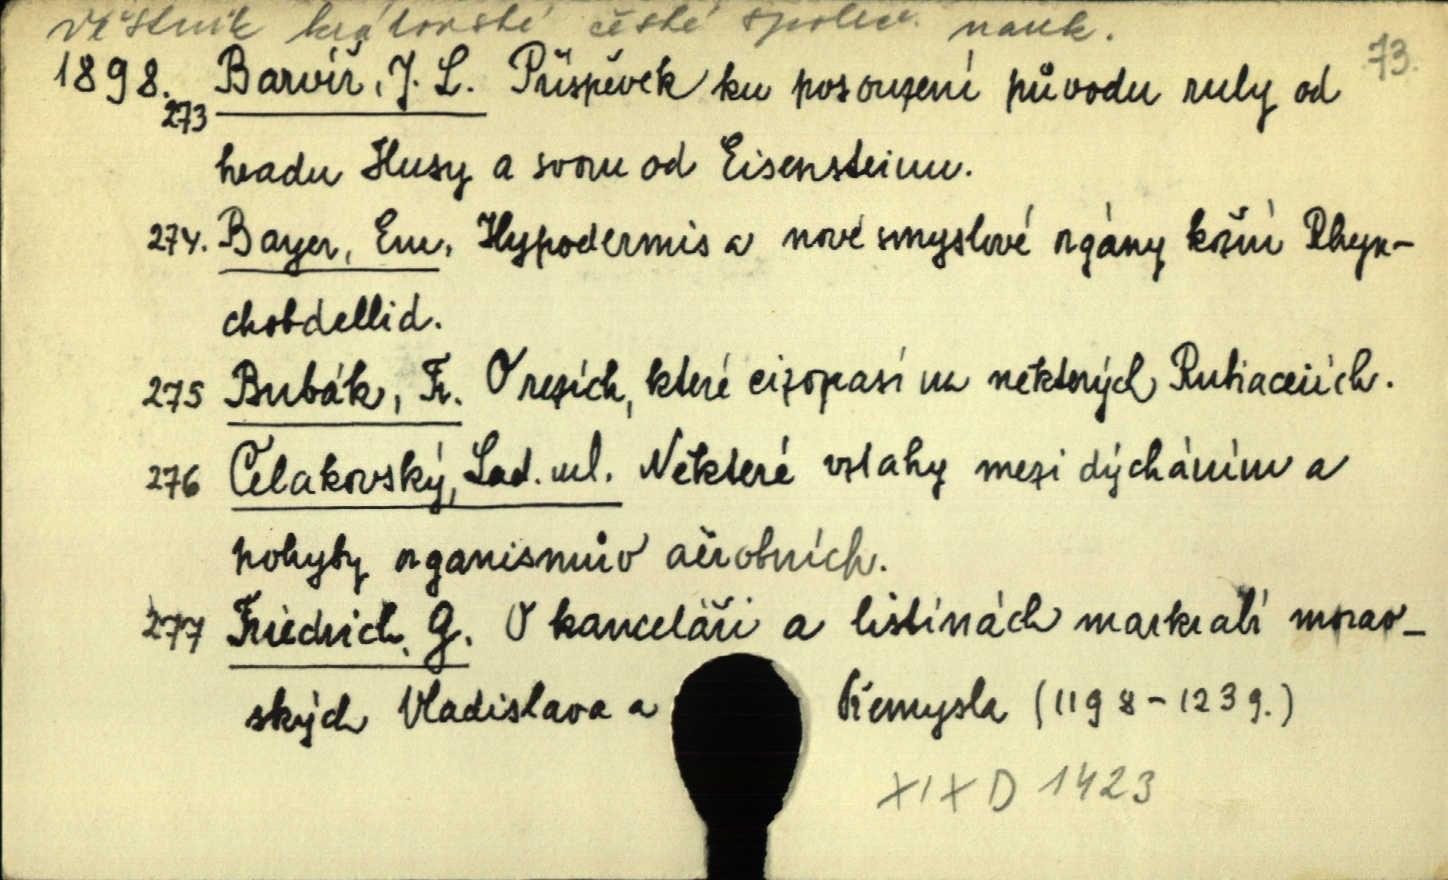 Věstník královské české společ. nauk.
73.
1898. Barvíř, J. L. Příspěvek ku posouzení původu ruly od
273
hradu Husy a svoru od Eisensteinu.
274. Bayer, Em. Hypodermis a nové smyslové orgány kožní Rhyn-
chobdellid.
275 Bubák, Fr. O rezích, které cizopasí na některých Rubiaceiích.
276 Čelakovský, Lad. ml. Některé vztahy mezi dýcháním a
pohyby organismův aërobních.
277 Friedrich, G. O kanceláři a listinách markrabí morav-
ských Vladislava a Přemysla (1198-1239.)
XIX D 1423